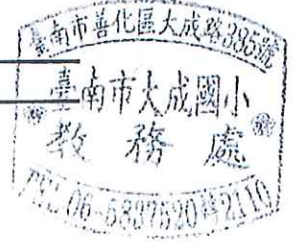 臺南市善化區大成路395號
臺南市大成國小
教務處
TEL 06-5837520轉2110